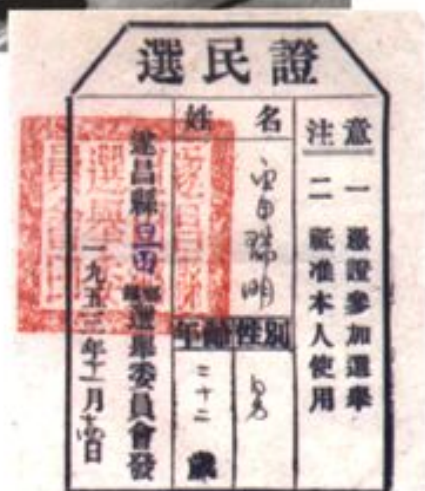 選民證
注意
一 憑證參加選舉
二 祇准本人使用
姓名
瑞明
性別
男
年齡
三十二歲
遂昌縣旦田選舉委員會發
一九五三年十一月日